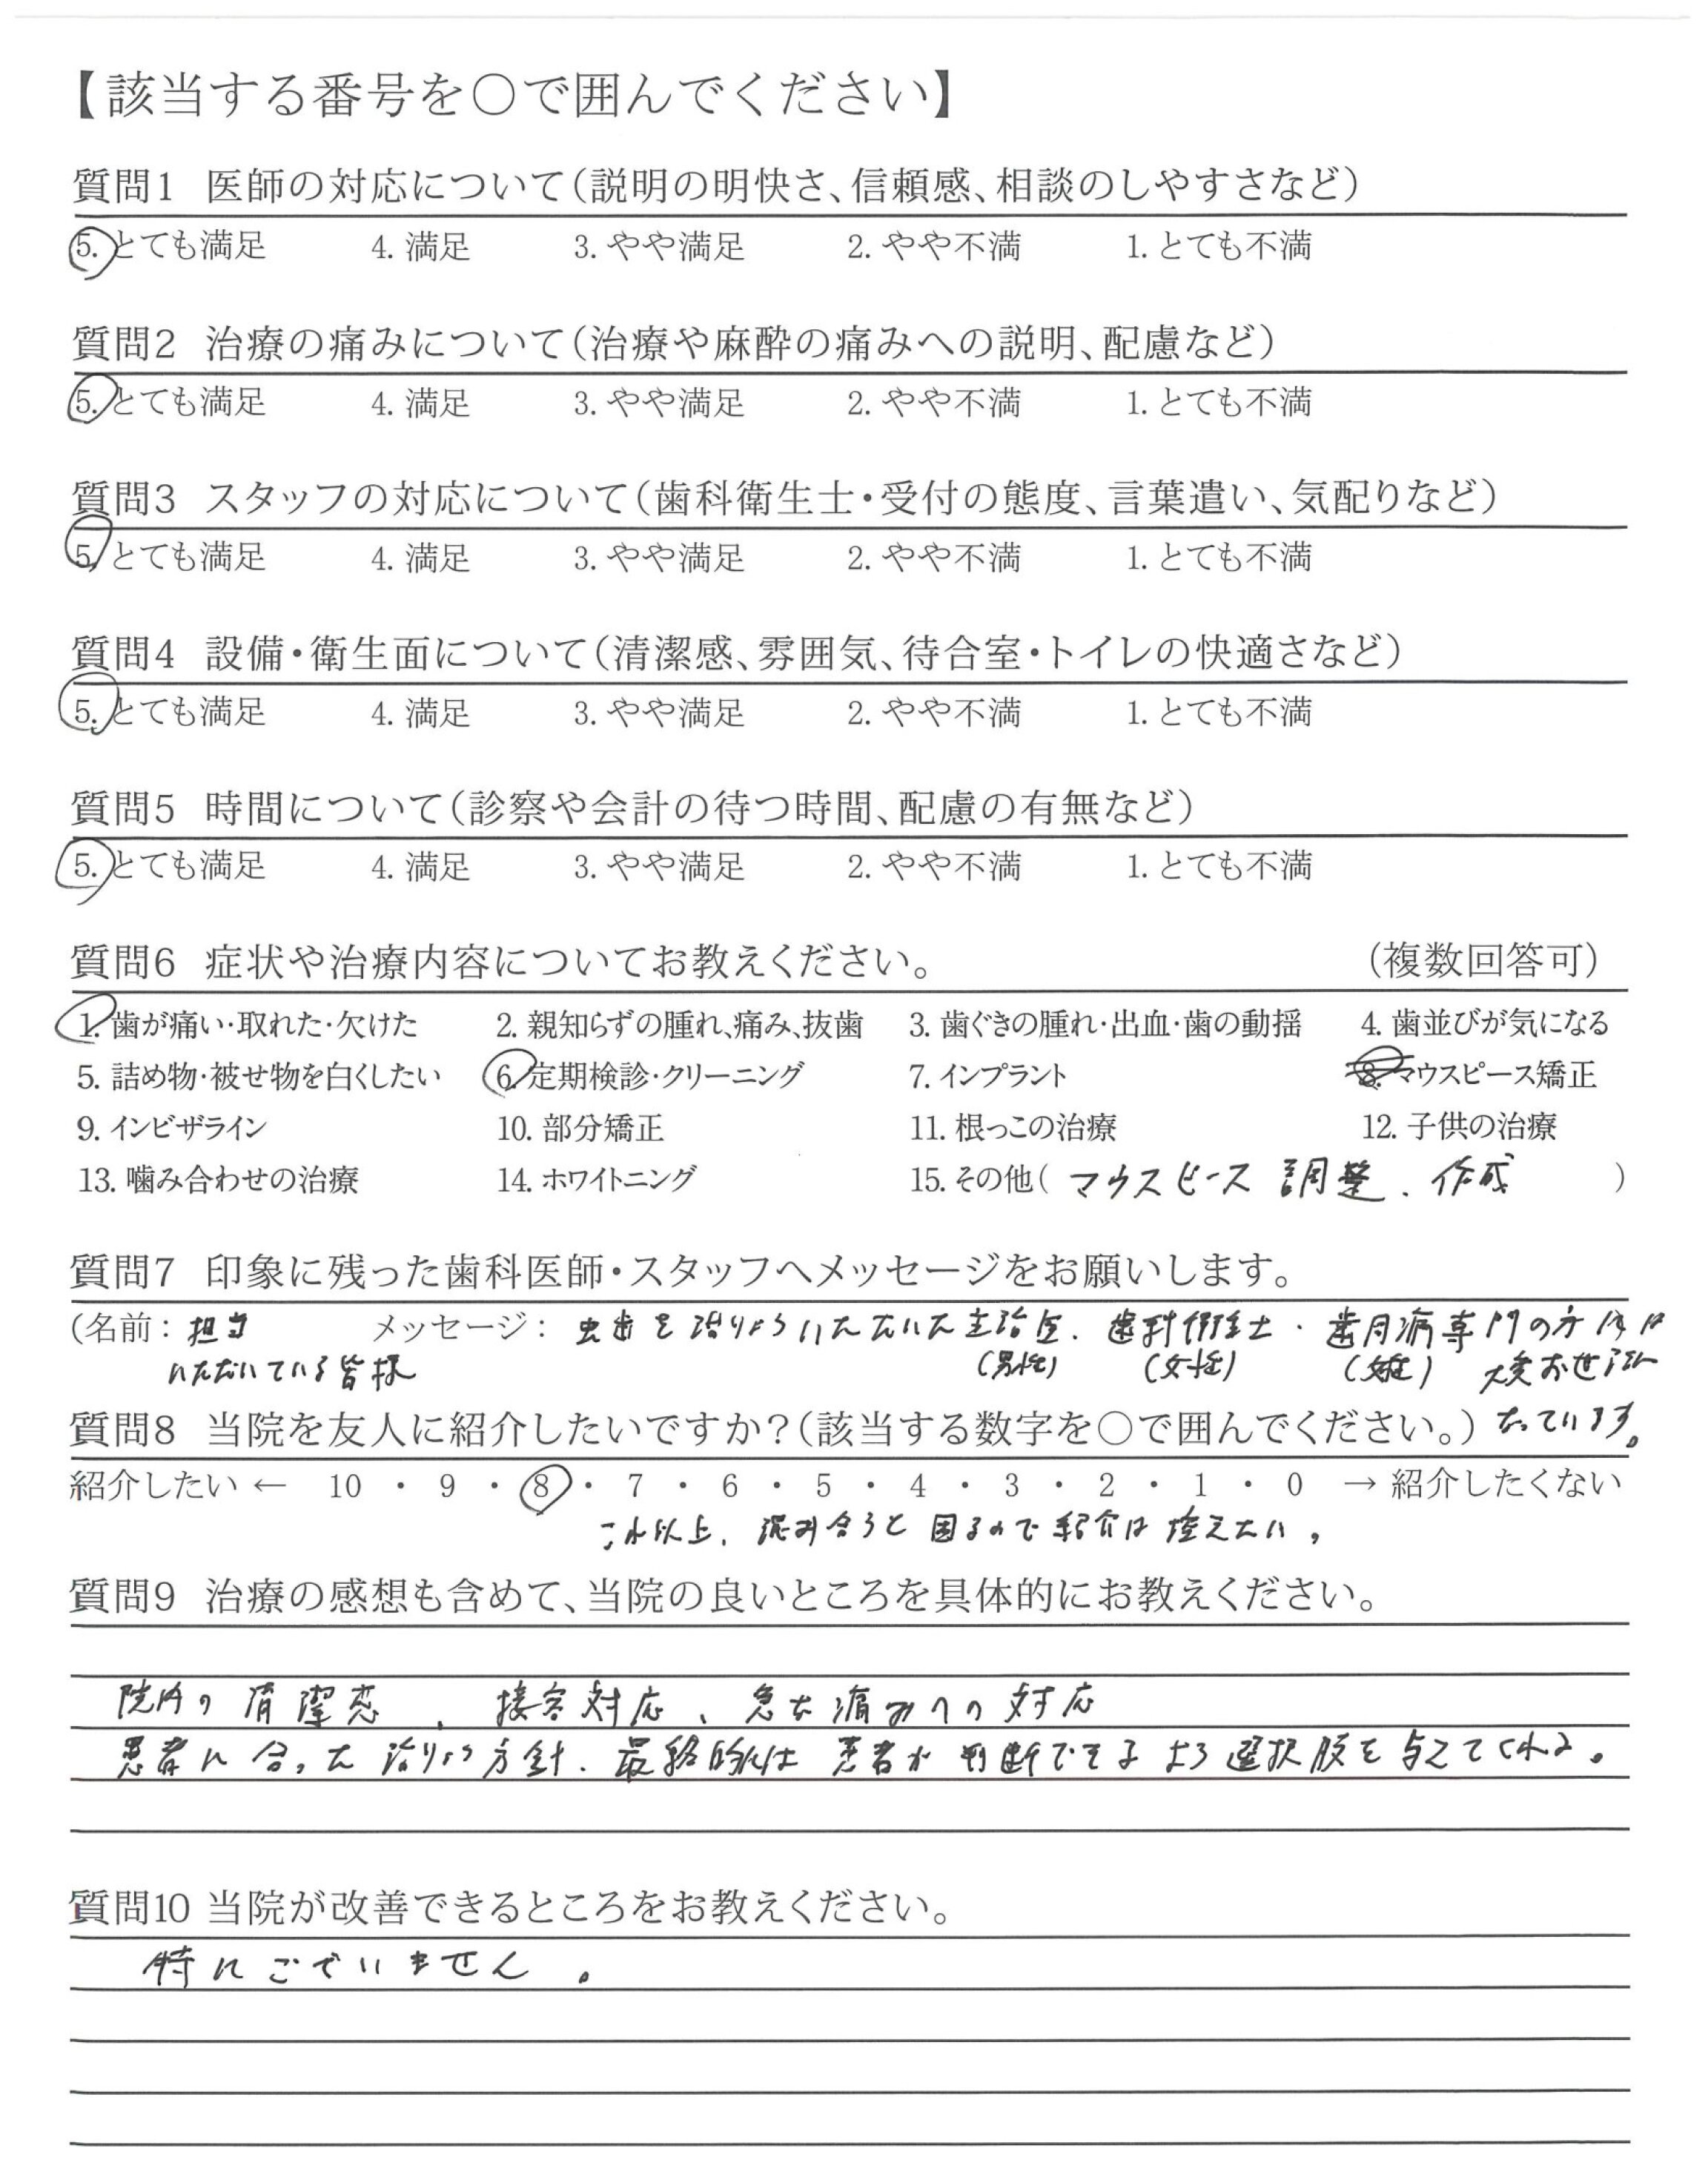 【該当する番号を○で囲んでください】
質問1 医師の対応について(説明の明快さ、信頼感、相談のしやすさなど)
5. とても満足 4. 満足 3. やや満足 2. やや不満 1. とても不満
質問2 治療の痛みについて(治療や麻酔の痛みへの説明、配慮など)
5. とても満足 4. 満足 3. やや満足 2. やや不満 1. とても不満
質問3 スタッフの対応について(歯科衛生士・受付の態度、言葉遣い、気配りなど)
5. とても満足 4. 満足 3. やや満足 2. やや不満 1. とても不満
質問4 設備・衛生面について(清潔感、雰囲気、待合室・トイレの快適さなど)
5. とても満足 4. 満足 3. やや満足 2. やや不満 1. とても不満
質問5 時間について(診察や会計の待つ時間、配慮の有無など)
5. とても満足 4. 満足 3. やや満足 2. やや不満 1. とても不満
質問6 症状や治療内容についてお教えください。 (複数回答可)
1. 歯が痛い・取れた・欠けた 2. 親知らずの腫れ、痛み、抜歯 3. 歯ぐきの腫れ・出血・歯の動揺 4. 歯並びが気になる
5. 詰め物・被せ物を白くしたい 6. 定期検診・クリーニング 7. インプラント 8. マウスピース矯正
9. インビザライン 10. 部分矯正 11. 根っこの治療 12. 子供の治療
13. 噛み合わせの治療 14. ホワイトニング 15. その他( マウスピース 調整、作成 )
質問7 印象に残った歯科医師・スタッフへメッセージをお願いします。
(名前: 担当 メッセージ: 虫歯を治りょういただいた主治医、歯科衛生士・歯周病専門の方には
いただいている皆様 (男性) (女性) (女性) 大変お世話に
質問8 当院を友人に紹介したいですか?(該当する数字を○で囲んでください。) なっています。
紹介したい ← 10 ・ 9 ・ 8 ・ 7 ・ 6 ・ 5 ・ 4 ・ 3 ・ 2 ・ 1 ・ 0 → 紹介したくない
これ以上、混み合うと困るので紹介は控えたい。
質問9 治療の感想も含めて、当院の良いところを具体的にお教えください。
院内の清潔感、接客対応、急な痛みへの対応
患者に合った治りょう方針、最終的には患者が判断できるよう選択肢を与えてくれる。
質問10 当院が改善できるところをお教えください。
特にございません。